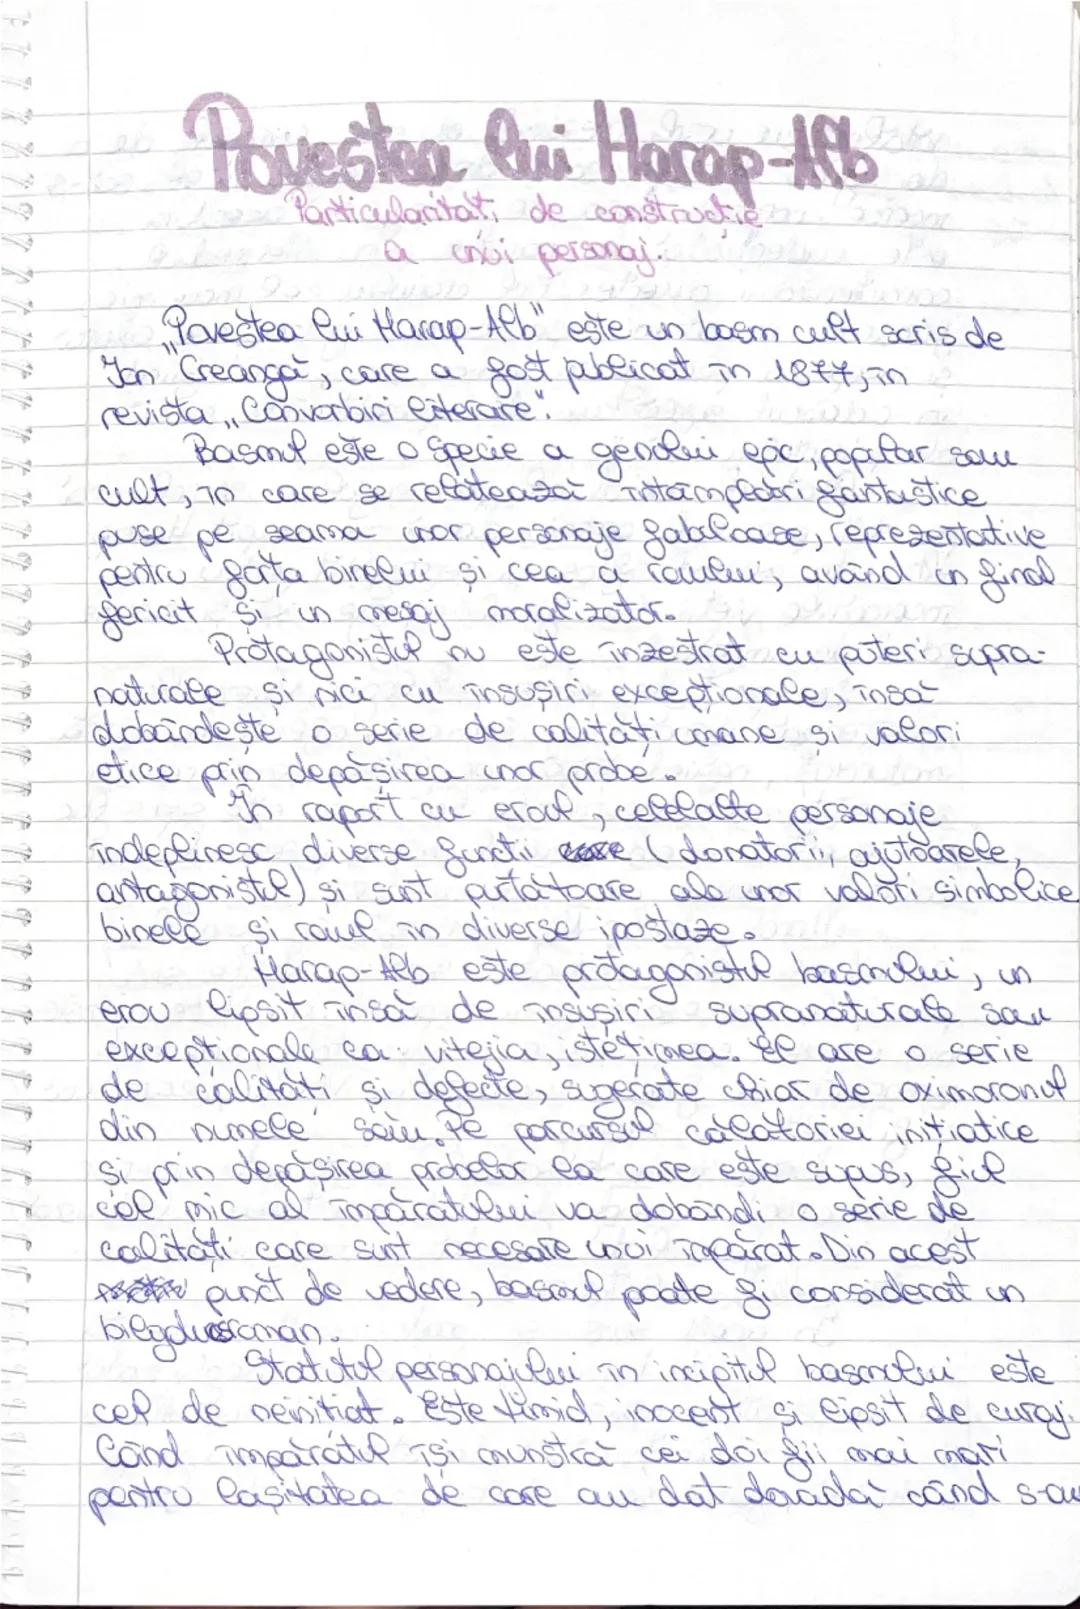 Povestea lui Harap-Alb
Particularități de construcție
a unui personaj.
„Povestea lui Harap-Alb" este un basm cult scris de
Ion Creangă, care a fost publicat în 1877, în
revista „Convorbiri literare".
Basmul este o specie a genului epic, popular sau
cult, în care se relatează întâmplări fantastice
puse pe seama unor personaje fabuloase, reprezentative
pentru forța binelui și cea a răului, având un final
fericit și un mesaj moralizator.
Protagonistul nu este înzestrat cu puteri supra-
naturale și nici cu însușiri excepționale, însă
dobândește o serie de calități umane și valori
etice prin depășirea unor probe.
În raport cu eroul, celelalte personaje
îndeplinesc diverse funcții (donatorii, ajutoarele,
antagonistul) și sunt purtătoare ale unor valori simbolice
binele și răul în diverse ipostaze.
Harap-Alb este protagonistul basmului, un
erou lipsit însă de însușiri supranaturale sau
excepționale ca: vitejia, istețimea. El are o serie
de calități și defecte, sugerate chiar de oximoronul
din numele său. Pe parcursul călătoriei inițiatice
și prin depășirea probelor la care este supus, fiul
cel mic al împăratului va dobândi o serie de
calități care sunt necesare unui împărat. Din acest
punct de vedere, basmul poate fi considerat un
bildungsroman.
Statutul personajului în incipitul basmului este
cel de neinițiat. Este timid, inocent și lipsit de curaj.
Când împăratul își mustră cei doi fii mai mari
pentru lașitatea de care au dat dovadă când s-au